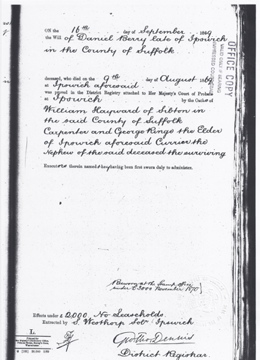 On the 16th day of September 1869
the Will of Daniel Berry late of Ipswich
in the County of Suffolk
deceased, who died on the 9th day of August 1869
at Ipswich aforesaid
was proved in the District Registry attached to Her Majesty's Court of Probate
at Ipswich by the Oaths of
William Hayward of Sibton in
the said County of Suffolk
Carpenter and George Ringe the Elder
of Ipswich aforesaid Currier the
Nephew of the said deceased the surviving
Executors therein named they having been first sworn duly to administer.
OFFICE COPY
under £
Effects under £ 2000 No Leaseholds.
Extracted by S. Westhorp Solr Ipswich
L.
District Registrar.